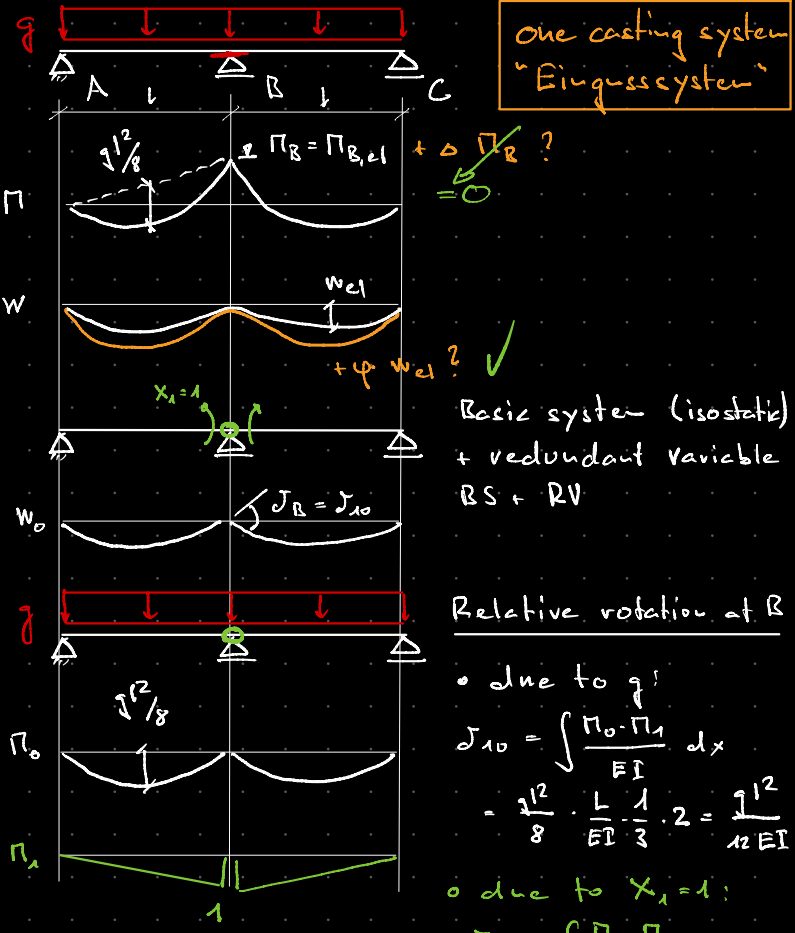 g
one casting system
"Eingusssystem"
A B C
gl²/8
M_B = M_B,el + Δ M_B ?
= 0
M
w_el
W
+ φ · w_el ?
X₁=1
Basic system (isostatic)
+ redundant variable
BS + RV
W₀
δ_B = δ₁₀
g
Relative rotation at B
• due to g:
gl²/8
δ₁₀ = ∫ M₀·M₁/EI dx
M₀
= gl²/8 · L/EI · 1/3 · 2 = gl²/12 EI
M₁
1
• due to X₁=1: